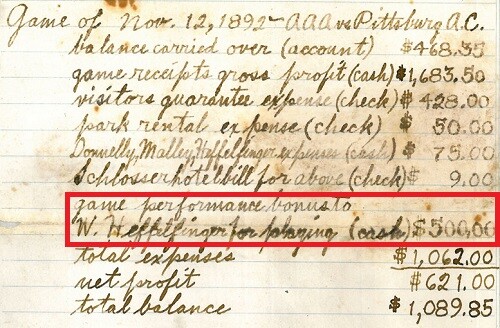 Game of Nov. 12, 1892 - AAA vs Pittsburg A.C.
balance carried over (account) $468.35
game receipts gross profit (cash) $1,683.50
visitors guarantee expense (check) $428.00
park rental expense (check) $50.00
Donnelly, Malley, Heffelfinger expenses (cash) $75.00
Schlosser hotel bill for above (check) $9.00
game performance bonus to
W. Heffelfinger for playing (cash) $500.00
total expenses $1,062.00
net profit $621.00
total balance $1,089.85